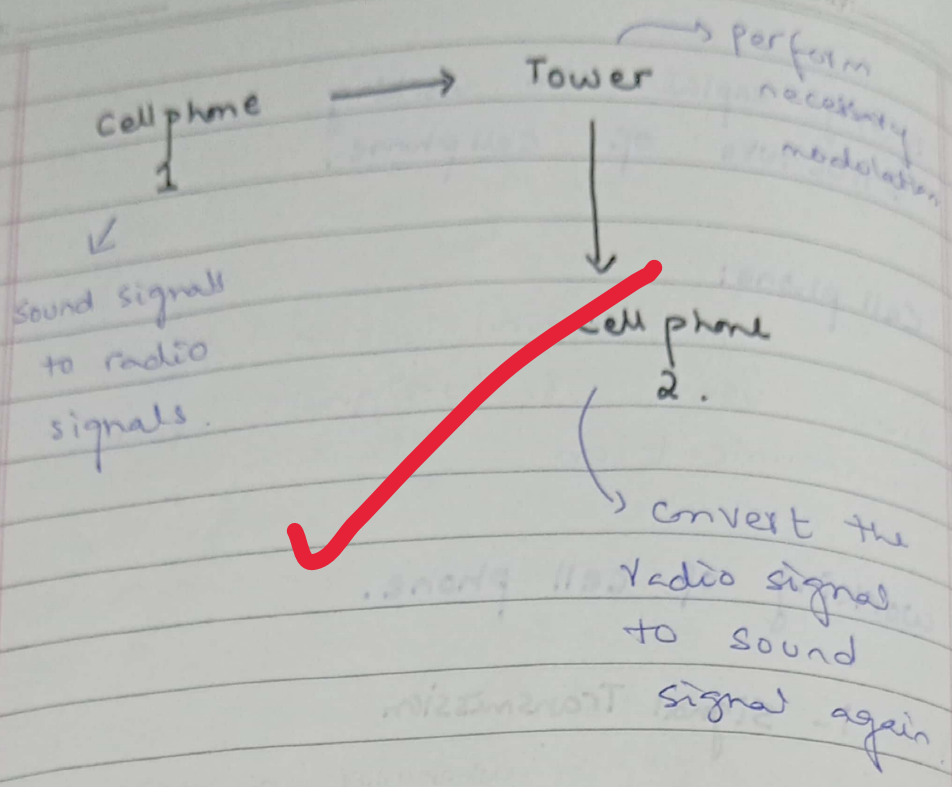 Cell phone
1
→ Tower
→ perform
necessary
modulation
sound signals
to radio
signals.
Cell phone
2.
convert the
radio signal
to sound
signal again